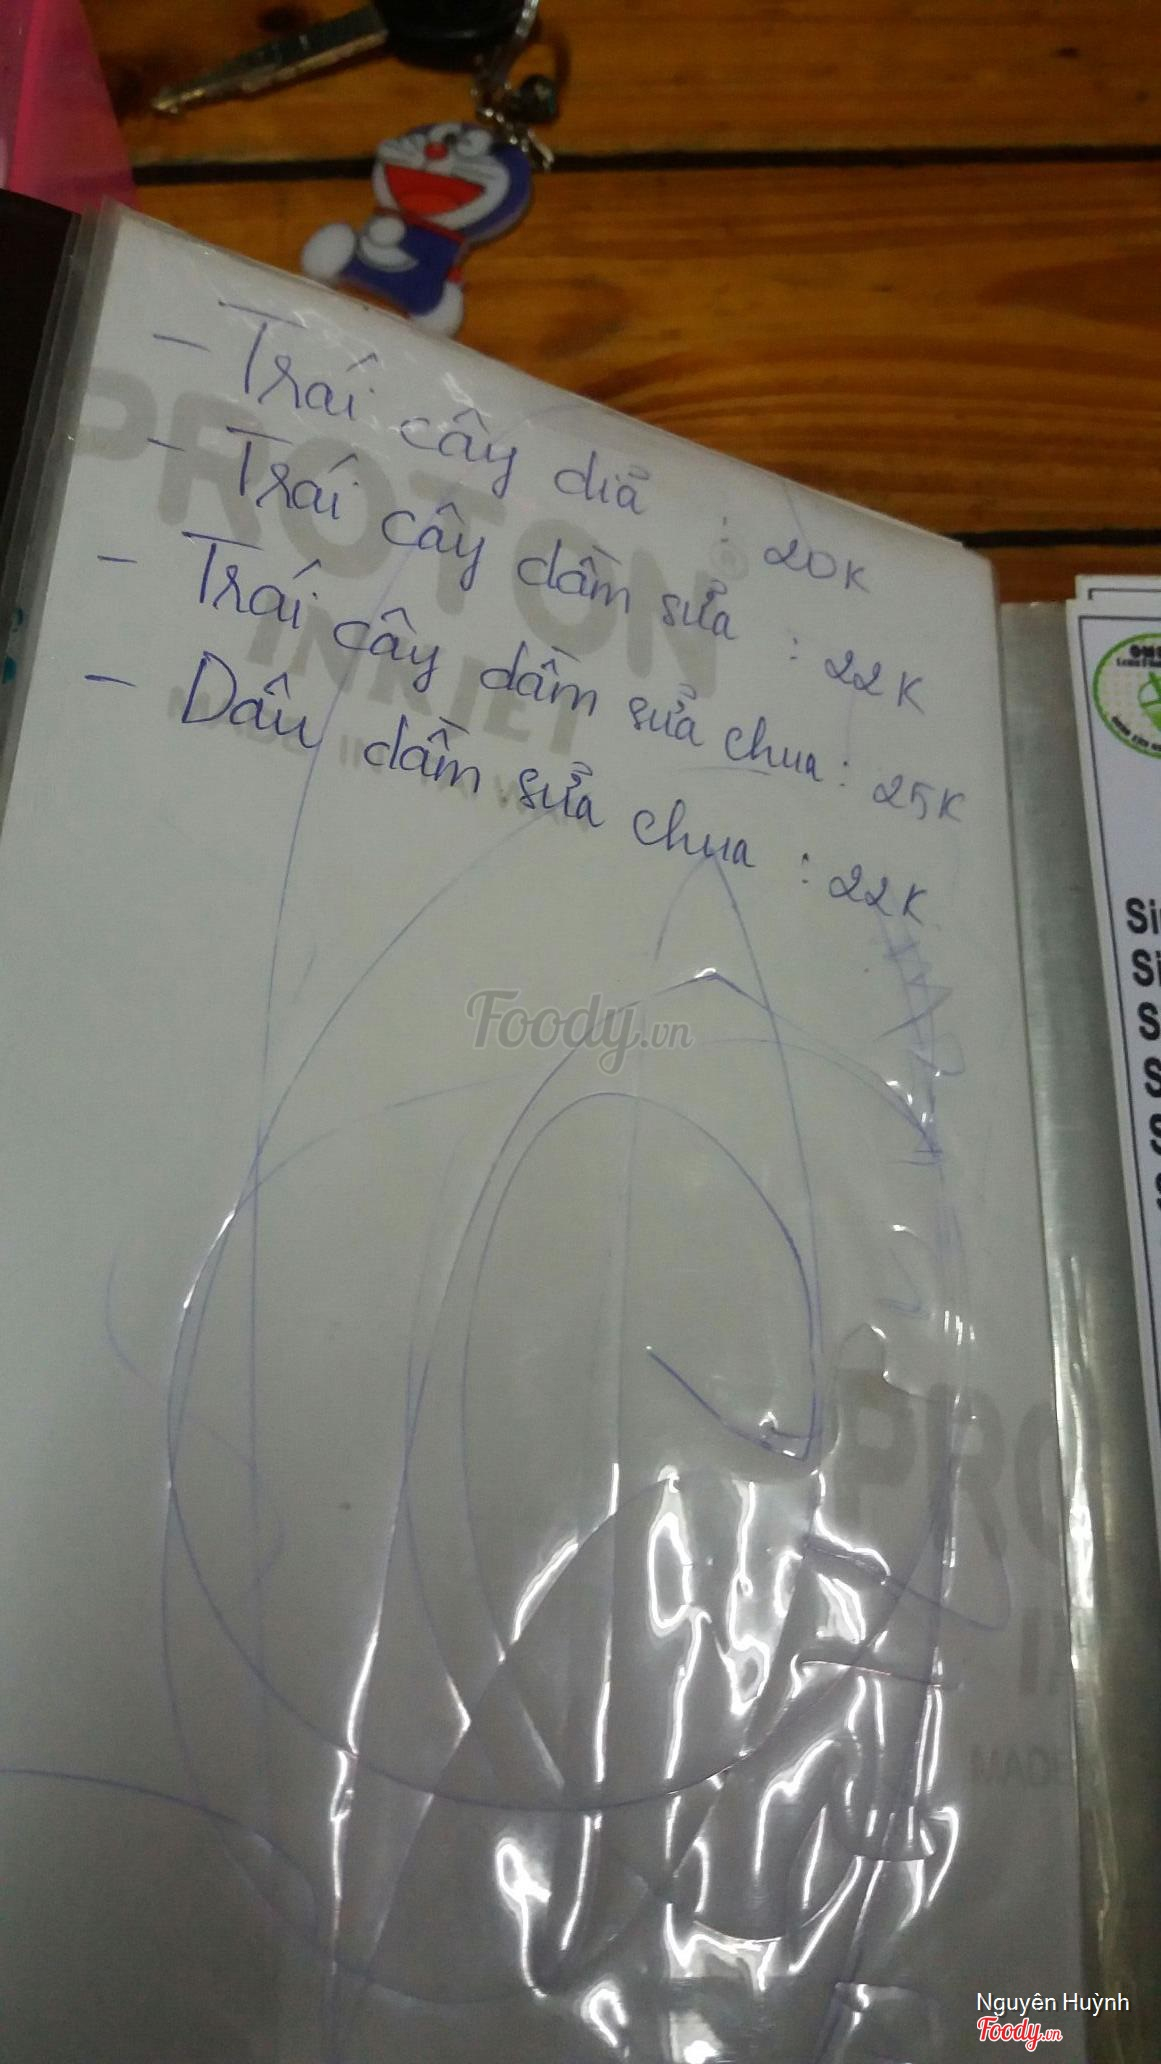 - Trái cây dĩa : 20K
- Trái cây dầm sửa : 22K
- Trái cây dầm sửa chua : 25K
- Dâu dầm sửa chua : 22K
PROTON
INKJET
MADE IN
Foody.vn
PRO
Nguyên Huỳnh
Foody.vn